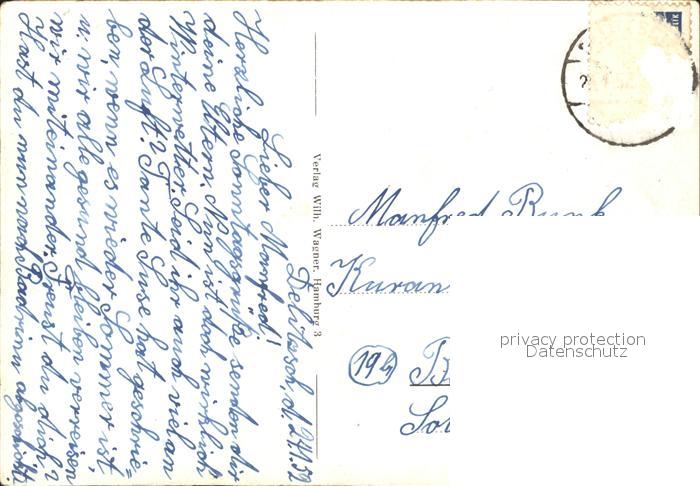 Delitzsch, d. 24.1.52
Lieber Manfred!
Herzliche Sonntagsgrüße senden dir
deine Eltern. Nun ist doch wirklich
Winterwetter. Seid ihr auch viel an
der Luft? Tante Suse hat geschrie=
ben, wenn es wieder Sommer ist
u. wir alle gesund bleiben, verreisen
wir miteinander. Freust du dich?
Hast du nun nach
Verlag Wilh. Wagner, Hamburg 3
Manfred
Kuran
(19b)
privacy protection
Datenschutz